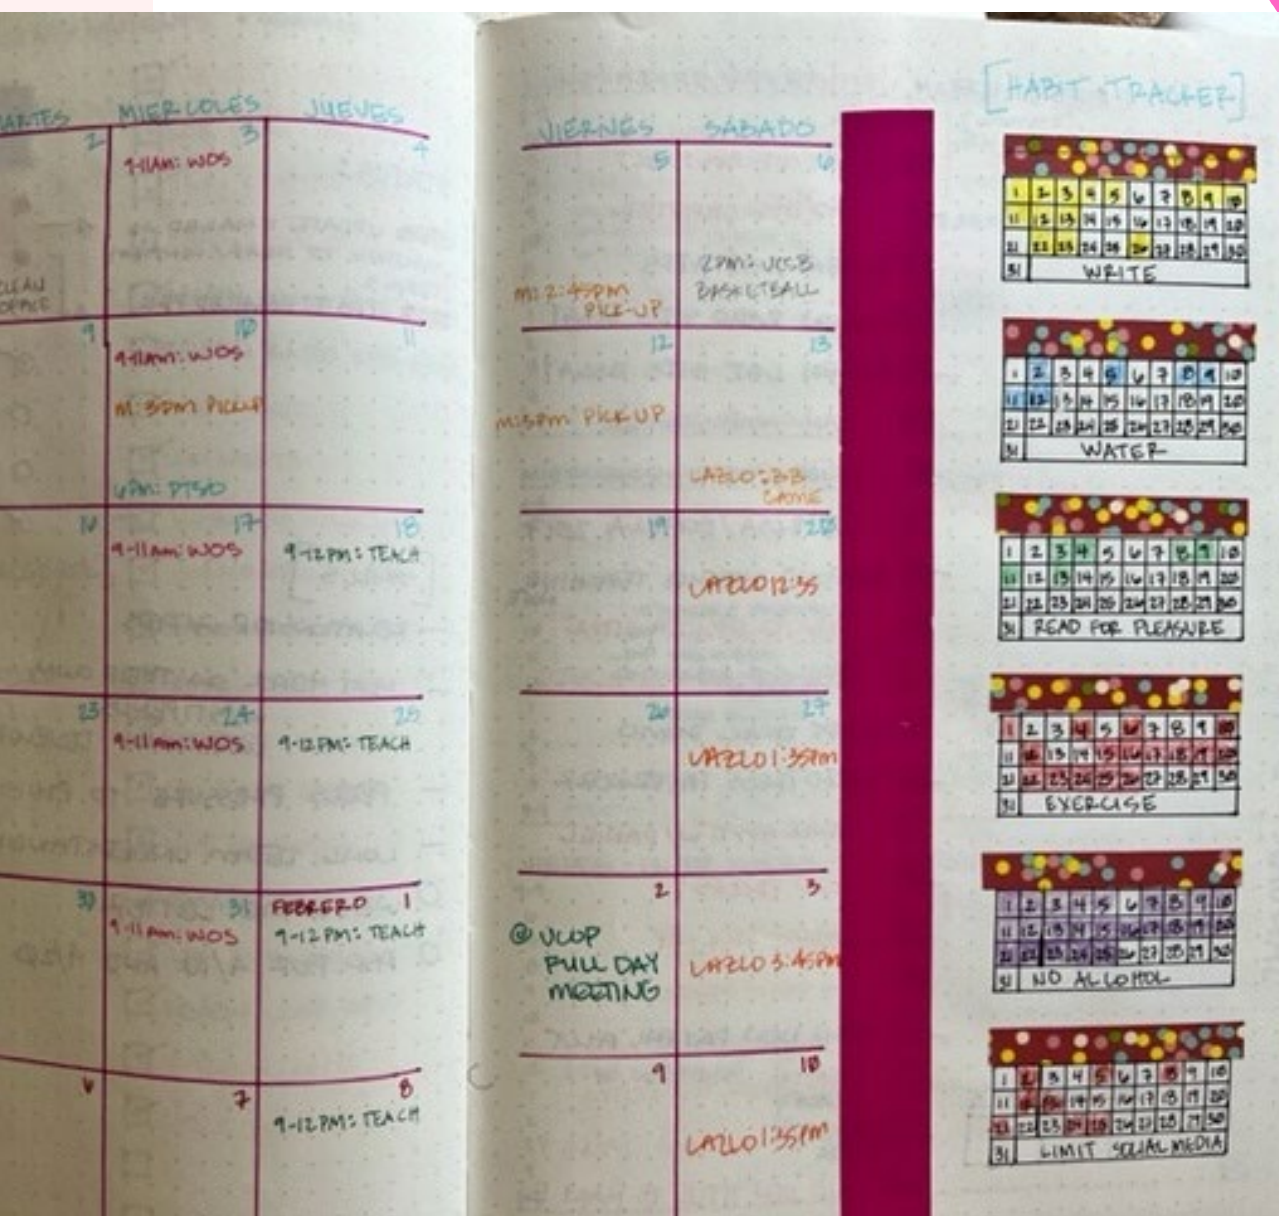 MIERCOLES JUEVES
2 3 4
9-11AM: WOS
CLEAN
OFFICE
9 10 11
9-11AM: WOS
M: 3PM PICKUP
6PM: PTSO
16 17 18
9-11AM: WOS 9-12PM: TEACH
23 24 25
9-11AM: WOS 9-12PM: TEACH
30 31 FEBRERO 1
9-11AM: WOS 9-12PM: TEACH
6 7 8
9-12PM: TEACH
VIERNES SABADO
5 6
2PM: UCSB
BASKETBALL
M: 2:45PM
PICK-UP
12 13
M: 3PM PICKUP
LAZLO: BB
GAME
19 20
LAZLO 12:35
26 27
LAZLO 1:35PM
2 3
@ UCOP
FULL DAY
MEETING
LAZLO 3:45PM
9 10
LAZLO 1:35PM
[HABIT TRACKER]
1 2 3 4 5 6 7 8 9 10
11 12 13 14 15 16 17 18 19 20
21 22 23 24 25 26 27 28 29 30
31 WRITE
1 2 3 4 5 6 7 8 9 10
11 12 13 14 15 16 17 18 19 20
21 22 23 24 25 26 27 28 29 30
31 WATER
1 2 3 4 5 6 7 8 9 10
11 12 13 14 15 16 17 18 19 20
21 22 23 24 25 26 27 28 29 30
31 READ FOR PLEASURE
1 2 3 4 5 6 7 8 9 10
11 12 13 14 15 16 17 18 19 20
21 22 23 24 25 26 27 28 29 30
31 EXERCISE
1 2 3 4 5 6 7 8 9 10
11 12 13 14 15 16 17 18 19 20
21 22 23 24 25 26 27 28 29 30
31 NO ALCOHOL
1 2 3 4 5 6 7 8 9 10
11 12 13 14 15 16 17 18 19 20
21 22 23 24 25 26 27 28 29 30
31 LIMIT SOCIAL MEDIA